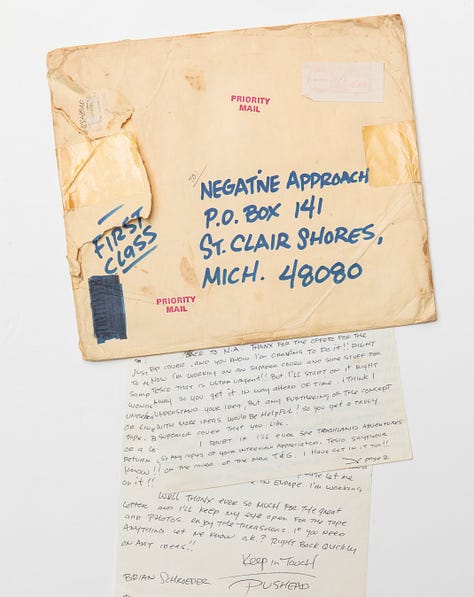 PUSHEAD
PRIORITY
MAIL
TO:
NEGATIVE APPROACH
P.O. BOX 141
ST. CLAIR SHORES,
MICH. 48080
FIRST
CLASS
PRIORITY
MAIL
BACK TO N.A. THANX FOR THE OFFER FOR THE
EP COVER, AND YOU KNOW I'M CRAVING TO DO IT!! RIGHT
NOW I'M WORKING ON AN COVER AND SOME STUFF FOR
TESCO THAT IS ULTRA URGENT!! BUT I'LL START ON IT RIGHT
AWAY SO YOU GET IT IN WAY AHEAD OF TIME. I THINK I
UNDERSTAND YOUR IDEA, BUT ANY FURTHERING OF THE CONCEPT
WITH MORE IDEAS WOULD BE HELPFUL! SO YOU GET A TRULY
SUPERIOR COVER THAT YOU LIKE.
I DOUBT IF I'LL EVER SEE TRASHLAND ADVENTURES
SO ANY COPIES OF YOUR INTERVIEW APPRECIATED. TESCO SAYS YOUR
ON THE COVER OF THE NEW T&G. I HAVE GOT IN IT TOO!!
page 2
LET ME
IN EUROPE. I'M WORKING
WELL THANX EVER SO MUCH FOR THE GREAT
LETTER AND I'LL KEEP MY EYE OPEN FOR THE TAPE
AND PHOTOS. ENJOY THE THRASHERS. IF YOU NEED
ANYTHING LET ME KNOW O.K.? RIGHT BACK QUICKLY
ON ART IDEAS!!
KEEP IN TOUCH
BRIAN SCHROEDER PUSHEAD